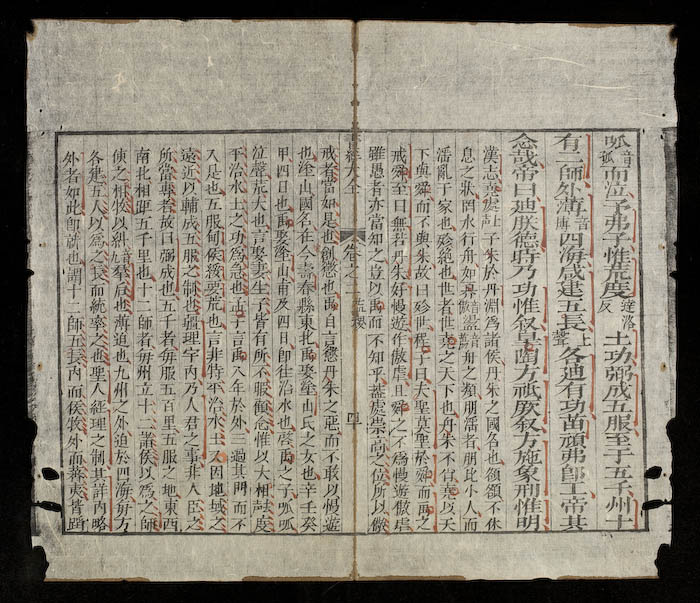 呱音孤而泣予弗子惟荒度達洛反土功弼成五服至于五千州十
有二師外薄音博四海咸建五長上聲各迪有功苗頑弗卽工帝其
念哉帝曰迪朕德時乃功惟敘皐陶方祗厥敘方施象刑惟明
漢志堯處上聲子朱於丹淵爲諸侯丹朱之國名也頟頟不休
息之狀罔水行舟如奡盪舟之類朋淫者朋比小人而
淫亂于家也殄絶也世者世堯之天下也丹朱不肖堯以天
下與舜而不與朱故曰殄世程子曰夫聖莫聖於舜而禹之
戒舜至曰無若丹朱好慢遊作傲虐且舜之不爲慢遊傲虐
雖愚者亦當知之豈以禹而不知乎蓋處崇高之位所以儆
書經大全 卷之二 益稷
戒者當如是也創懲也禹自言懲丹朱之惡而不敢以慢遊
也塗山國名在今壽春縣東北禹娶塗山氏之女也辛壬癸
甲四日也禹娶塗山甫及四日卽往治水也啓禹之子呱呱
泣聲荒大也言娶妻生子皆有所不暇顧念惟以大相度
平治水土之功爲急也孟子言禹八年於外三過其門而不
入是也五服甸侯綏要荒也言非特平治水土又因地域之
遠近以輔成五服之制也疆理宇內乃人君之事非人臣之
所當專者故曰弼成也五千者每服五百里五服之地東西
南北相距五千里也十二師者每州立十二諸侯以爲之師
使之相牧以糾羣后也薄迫也九州之外迫於四海每方
各建五人以爲之長而統率之也聖人經理之制其詳內略
外者如此卽就也謂十二師五長內而侯牧外而蕃夷皆蹈